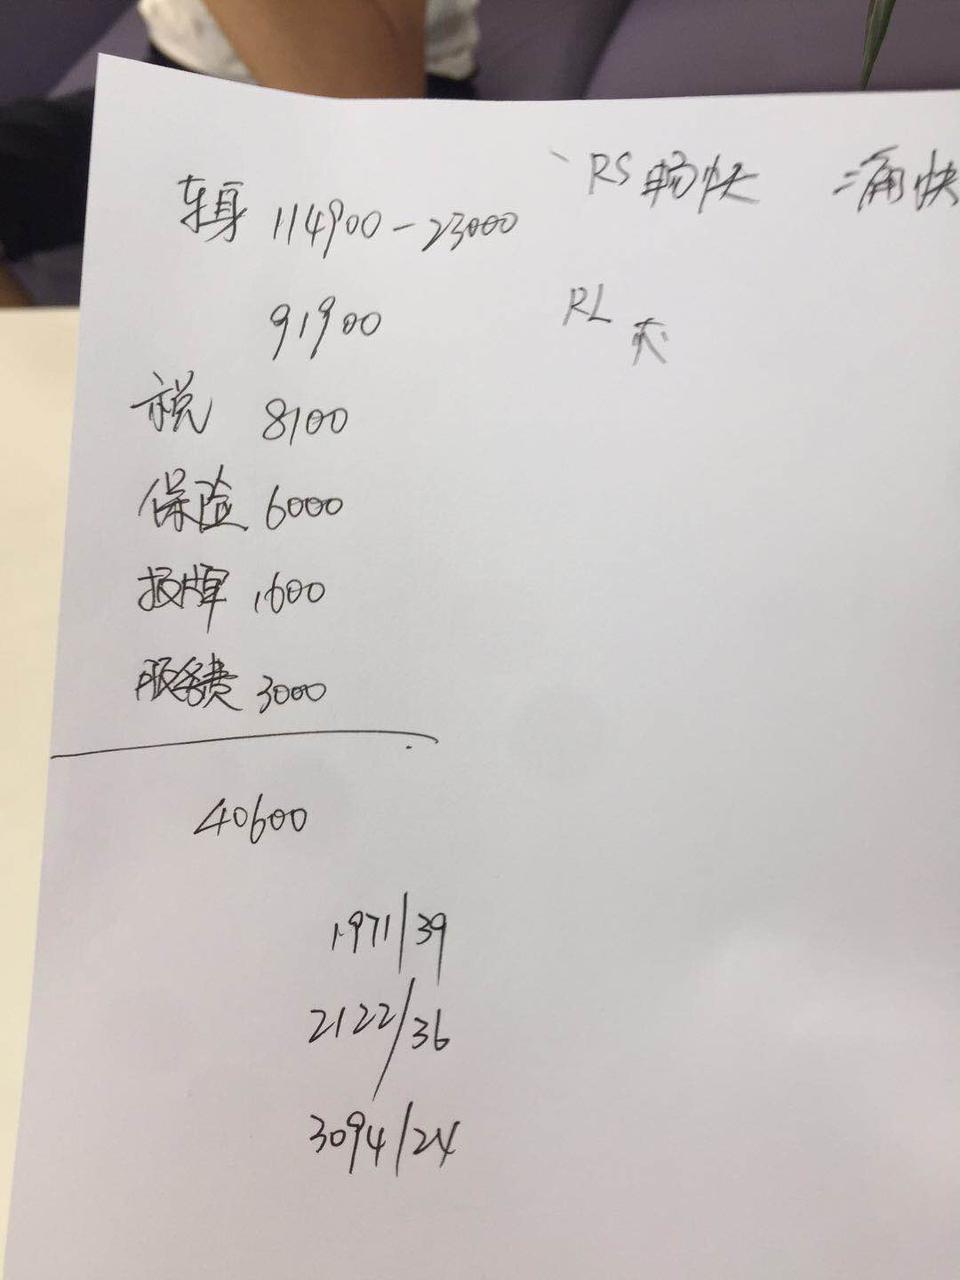 车身 114900-23000
91900
税 8100
保险 6000
报牌 1600
服务费 3000
40600
1971/39
2122/36
3094/24
RS 畅快 痛快
RL